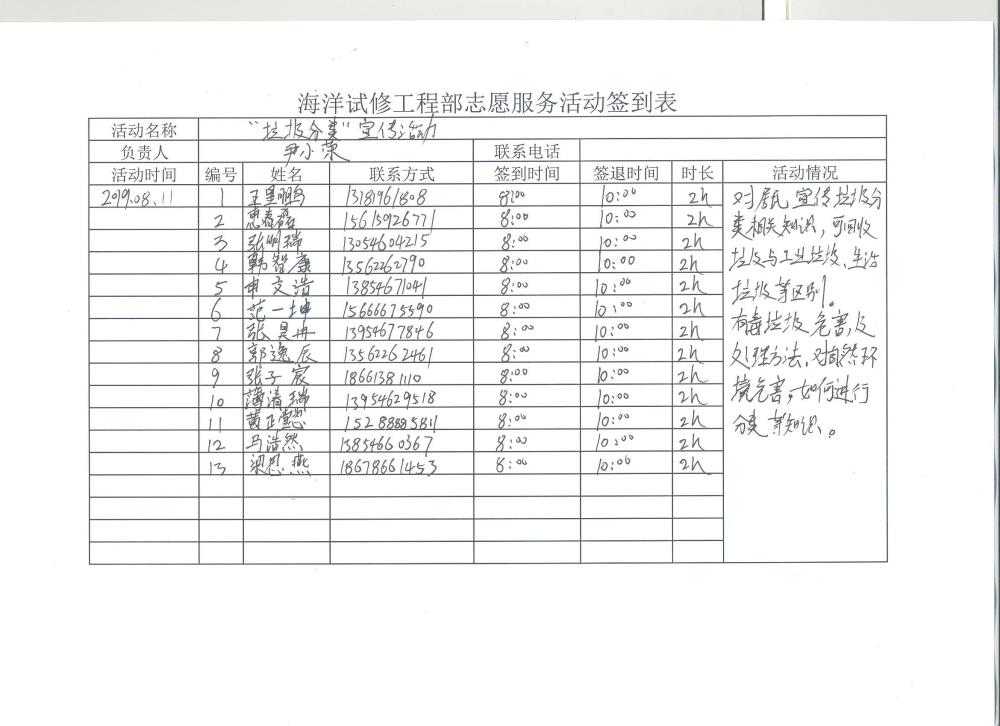 海洋试修工程部志愿服务活动签到表
活动名称 "垃圾分类"宣传活动
负责人 尹小荣 联系电话
活动时间 编号 姓名 联系方式 签到时间 签退时间 时长 活动情况
2019.08.11 1 王星鹏 13181961808 8:00 10:00 2h
2 惠春磊 15615926771 8:00 10:00 2h
3 张明瑞 13054604215 8:00 10:00 2h
4 韩智康 13562262790 8:00 10:00 2h
5 申文浩 13854671041 8:00 10:00 2h
6 范一坤 15666675590 8:00 10:00 2h
7 张昊冉 13954677846 8:00 10:00 2h
8 郭逸辰 13562262461 8:00 10:00 2h
9 张子宸 18661381110 8:00 10:00 2h
10 薄清瑞 13954629518 8:00 10:00 2h
11 黄正 15288885811 8:00 10:00 2h
12 马浩然 15854660367 8:00 10:00 2h
13 梁思燕 18678661453 8:00 10:00 2h
对居民宣传垃圾分
类相关知识，可回收
垃圾与工业垃圾、生活
垃圾等区别。
有毒垃圾危害及
处理方法，对自然环
境危害，如何进行
分类等知识。